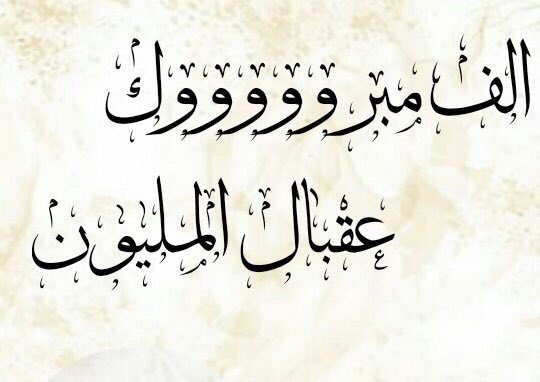 الف مبرووووووك
عقبال المليون